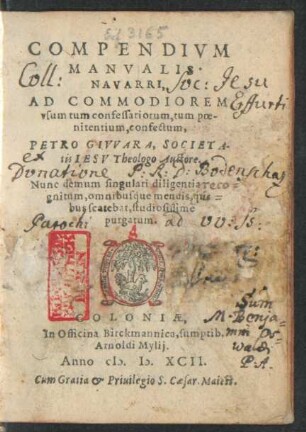 COMPENDIVM
MANVALIS
NAVARRI,
Coll: Soc: Jesu
AD COMMODIOREM
Effurti
vsum tum confessariorum, tum pœ-
nitentium, confectum,
PETRO GIVVARA, SOCIETA-
tis IESV Theologo Auctore.
ex
Donatione P: R: D: Bodenschaz
Nunc demum singulari diligentia reco-
gnitum, omnibusque mendis, qui-
bus scatebat, studiosissime
purgatum.
Parochi ad
COLONIÆ,
In Officina Birckmannica, sumptib.
Arnoldi Mylij.
Anno cIɔ. Iɔ. XCII.
Cum Gratia & Priuilegio S. Cæsar. Maiest.
Sum
M. Benja-